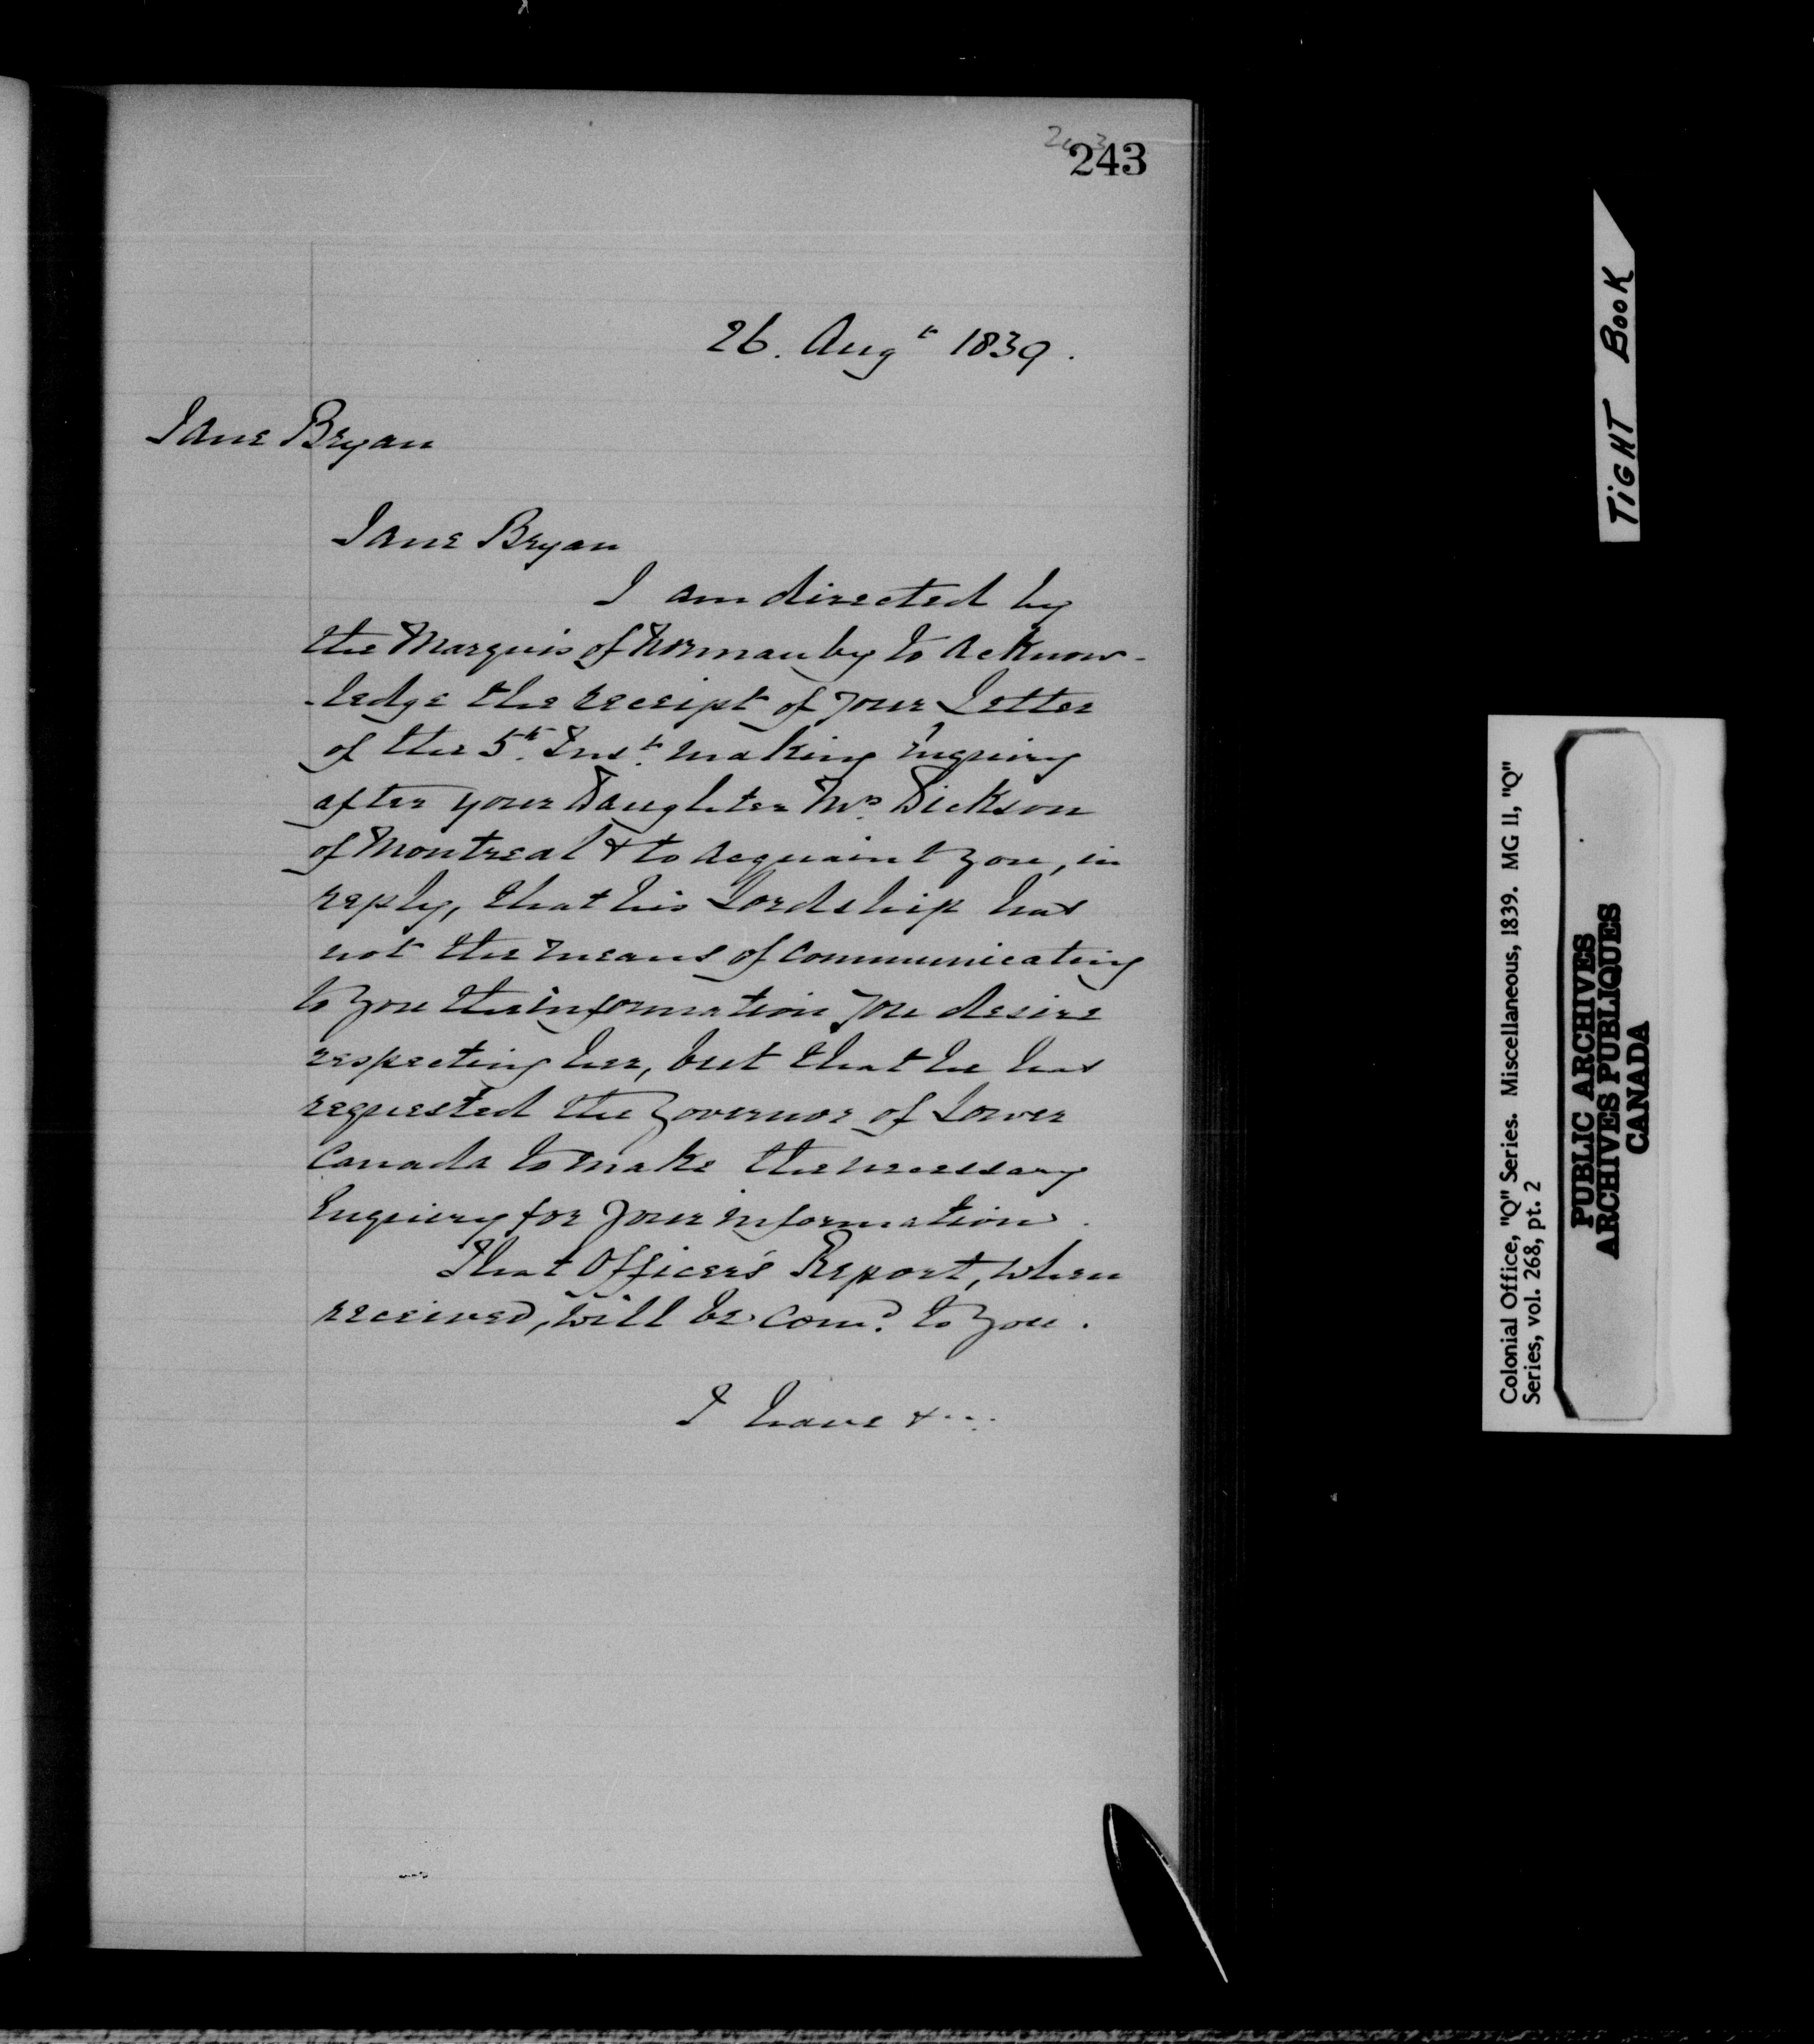 243
243
26. Augt 1839.
Jane Bryan
Jane Bryan
I am directed by
the Marquis of Normanby to acknow-
-ledge the receipt of your Letter
of the 5th Inst. making inquiry
after your Daughter Mrs. Dickson
of Montreal & to acquaint you, in
reply, that his Lordship has
not the means of communicating
to you the information you desire
respecting her, but that he has
requested the Governor of Lower
Canada to make the necessary
Enquiry for your information.
That Officer's Report, when
received, will be comd. to you.
I have &...
TiGHT BooK
Colonial Office, "Q" Series. Miscellaneous, 1839. MG 11, "Q"
Series, vol. 268, pt. 2
PUBLIC ARCHIVES
ARCHIVES PUBLIQUES
CANADA